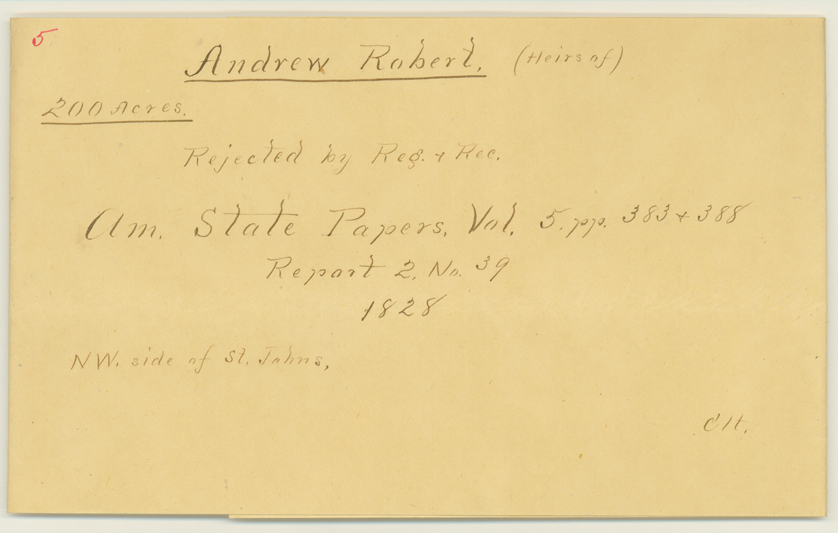 5
Andrew Robert. (Heirs of)
200 Acres.
Rejected by Reg. & Rec.
Am. State Papers, Vol. 5. pp. 383 & 388
Report 2. No. 39
1828
NW. side of St. Johns,